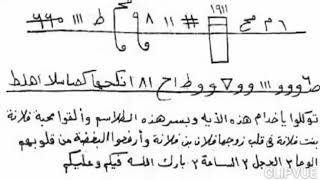 ٦ م مح ١٩١١ # ١١ ٨ ٩ ط ١١١
وو ▽ وو ط ا ح ٨١
توكلوا يا خدام هذه الآيه وبسر هذه الطلاسم وألقوا محبة فلانة
بنت فلانة في قلب زوجها فلان بن فلانة وأرفعوا البغضة من قلوبهم
الوحا ٢ العجل ٢ الساعة ٢ بارك الله فيكم وعليكم
CLIPVUE